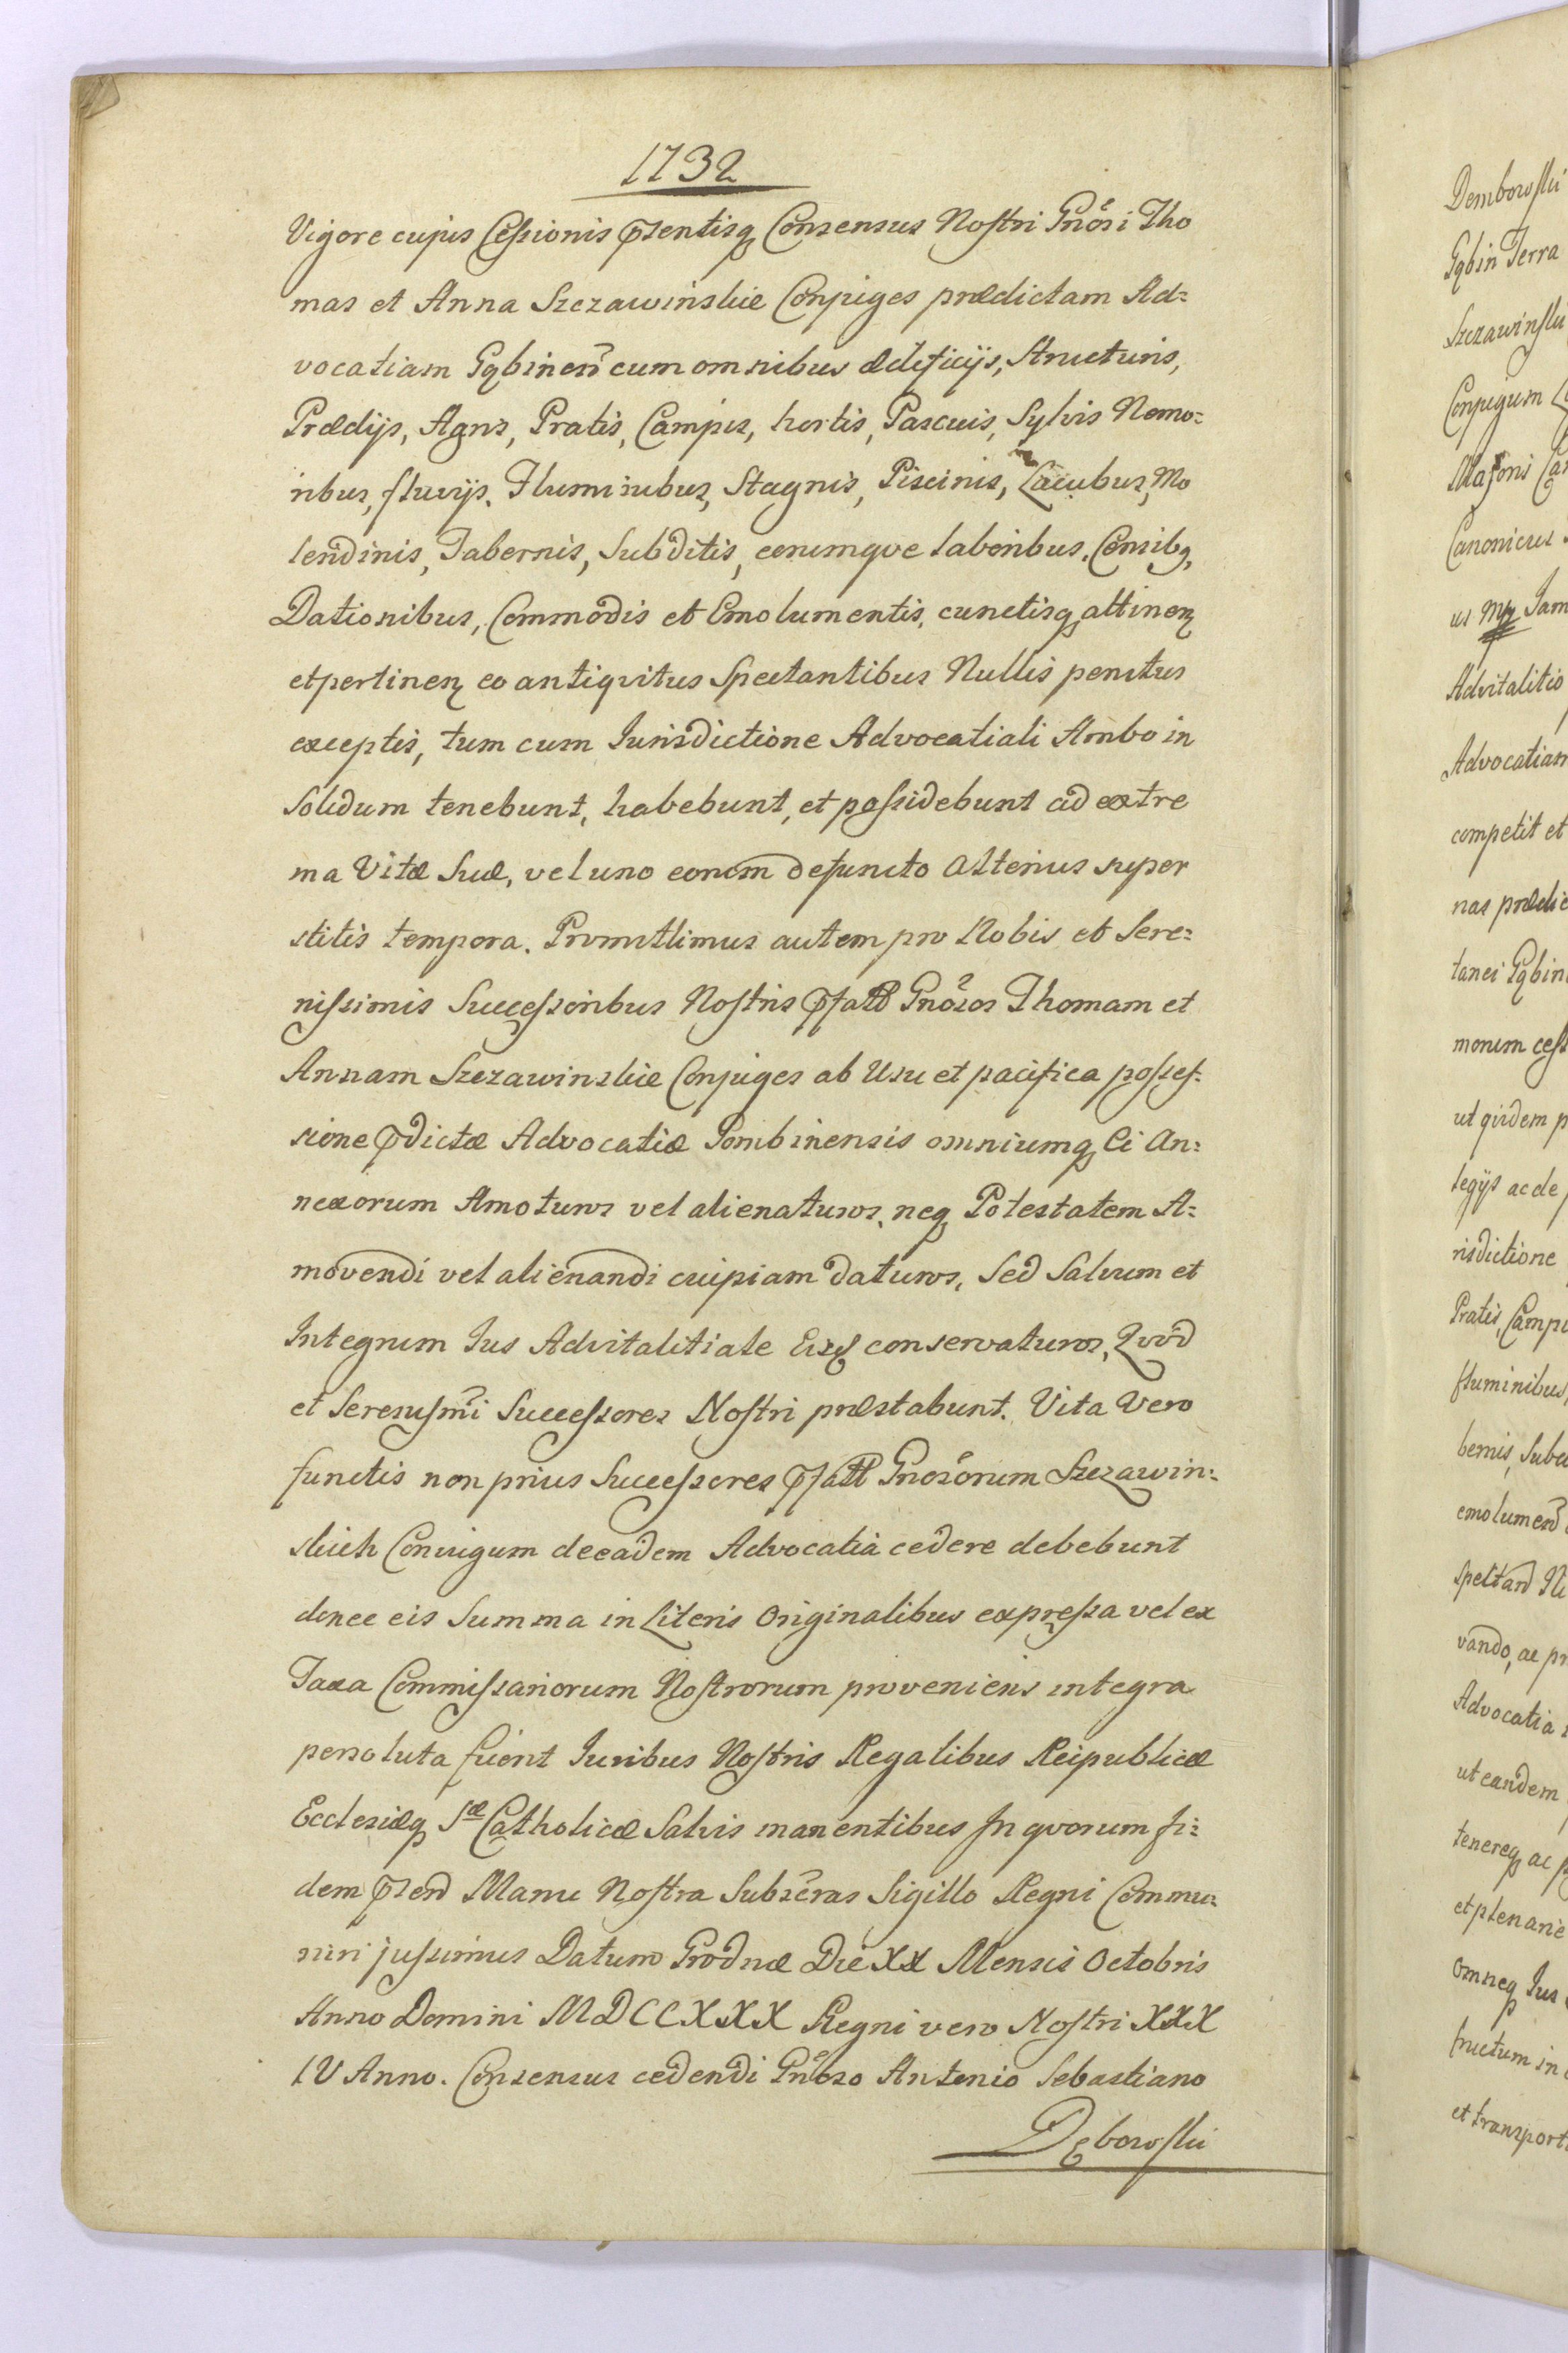 1732
Vigore cujus Cessionis pſentisq Consensus Nostri Gnosi Tho
mas et Anna Szczawinskie Conjuges prædictam Ad=
vocatiam Gąbinen cum omnibus ædificijs, Structuris,
Prædijs, Agris, Pratis, Campis, hortis, Pascuis, Sylvis Nemo=
ribus, fluvijs, Fluminibus, Stagnis, Piscinis, Lacubus, Mo
lendinis, Tabernis, Subditis, eorumqve laboribus, Censibq,
Dationibus, Commodis et Emolumentis, cunctisq attinen
et pertinen eo antiqvitus Spectantibus Nullis penitus
exceptis, tum cum Iurisdictione Advocatiali Ambo in
Solidum tenebunt, habebunt, et possidebunt ad extre
ma Vitæ Suæ, vel uno eorum defuncto alterius super
stitis tempora. Promittimus autem pro Nobis et Sere=
nissimis Successoribus Nostris pfatt Gnosos Thomam et
Annam Szczawinskie Conjuges ab Usu et pacifica posses=
sione pdictæ Advocatiæ Gombinensis omniumq Ei An=
nexorum Amoturos vel alienaturos, neq Potestatem A=
movendi vel alienandi cuipiam daturos, Sed Salvum et
Integrum Ius Advitalitiale Eisd conservaturos, Qvod
et Serenismi Successores Nostri præstabunt. Vita Vero
functis non prius Successores pfatt Gnosorum Szczawin=
skich Coniugum de eadem Advocatia cedere debebunt
donec eis Summa in Literis Originalibus expressa vel ex
Taxa Commissariorum Nostrorum proveniens integra
persoluta fuerit Iuribus Nostris Regalibus Reipublicæ
Ecclesiæq Sæ Catholicæ Salvis manentibus In qvorum fi=
dem psen Manu Nostra Subscras Sigillo Regni Commu=
niri jussimus Datum Grodnæ Die XX Mensis Octobris
Anno Domini MDCCXXX Regni vero Nostri XXX
IV Anno. Consensus cedendi Gnoso Antonio Sebastiano
Dębowski
Dembowski
Gąbin Terra
Szczawinski
Conjugum
Majoris
Canonicus
us mp Jam
Advitalitio
Advocatiam
competit et
nas prædic
tanei Gąbin
monem cess
ut qvidem p
legijs ac de
risdictione
Pratis, Campi
fluminibus,
bernis, Subd
emolumen
spectan N
vando, ac pr
Advocatia
ut eandem
tenereq ac p
et plenarie
omneq Ius
fructum in
et transport